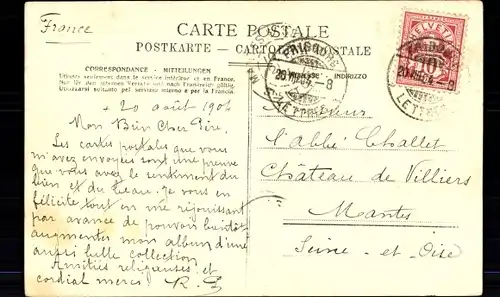 France
CARTE POSTALE
POSTKARTE - CARTOLINA POSTALE
CORRESPONDANCE - MITTEILUNGEN
INDIRIZZO
Utilisé seulement dans le service intérieur et en France.
Nur für den internen Verkehr und nach Frankreich gültig.
+ 20 août 1904
Mon Bien Cher Père.
Les cartes postales que vous
m'avez envoyées sont une preuve
que vous avez le sentiment du
bien et du beau. Je vous en
félicite tout en me réjouissant
par avance de pouvoir bientôt
augmenter mon album d'une
aussi belle collection.
Amitiés religieuses et
cordial merci
Monsieur
l'abbé Challet
Château de Villiers
Mantes
Seine-et-Oise
HELVETIA
10
FRIBOURG
LETTR